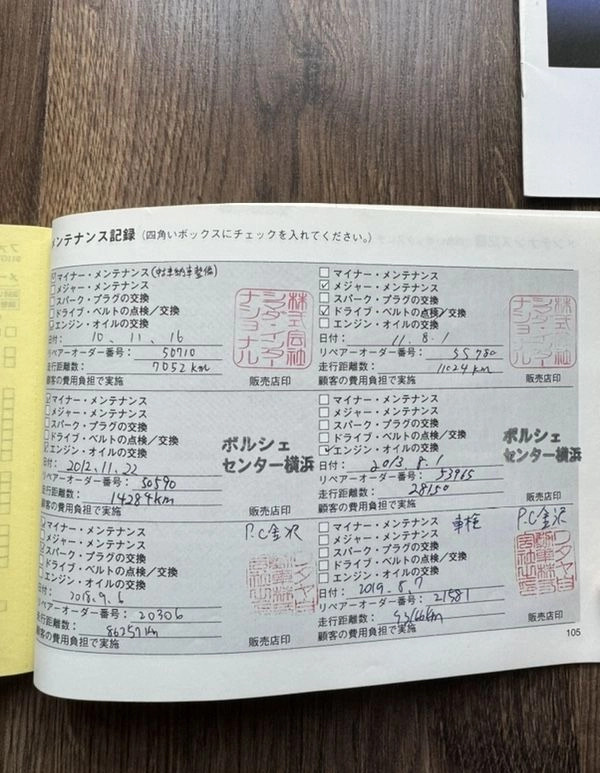 メンテナンス記録 (四角いボックスにチェックを入れてください。)
マイナー・メンテナンス (中古車納車整備)
メジャー・メンテナンス
スパーク・プラグの交換
ドライブ・ベルトの点検/交換
エンジン・オイルの交換
日付: 10. 11. 16
リペアーオーダー番号: 50710
走行距離数: 7052 km
顧客の費用負担で実施 販売店印
株式会社
シンダ・インター
ナショナル
マイナー・メンテナンス
メジャー・メンテナンス
スパーク・プラグの交換
ドライブ・ベルトの点検/交換
エンジン・オイルの交換
日付: 11. 8. 1
リペアーオーダー番号: 55780
走行距離数: 11024 km
顧客の費用負担で実施 販売店印
株式会社
シンダ・インター
ナショナル
マイナー・メンテナンス
メジャー・メンテナンス
スパーク・プラグの交換
ドライブ・ベルトの点検/交換
エンジン・オイルの交換
日付: 2012. 11. 22
リペアーオーダー番号: 50590
走行距離数: 14284km
顧客の費用負担で実施 販売店印
ポルシェ
センター横浜
マイナー・メンテナンス
メジャー・メンテナンス
スパーク・プラグの交換
ドライブ・ベルトの点検/交換
エンジン・オイルの交換
日付: 2013. 8. 1
リペアーオーダー番号: 53965
走行距離数: 28150
顧客の費用負担で実施 販売店印
ポルシェ
センター横浜
マイナー・メンテナンス P.C金沢
メジャー・メンテナンス
スパーク・プラグの交換
ドライブ・ベルトの点検/交換
エンジン・オイルの交換
日付: 2018. 9. 6
リペアーオーダー番号: 20306
走行距離数: 86257km
顧客の費用負担で実施 販売店印
マイナー・メンテナンス 車検 P.C金沢
メジャー・メンテナンス
スパーク・プラグの交換
ドライブ・ベルトの点検/交換
エンジン・オイルの交換
日付: 2019. 8. 7
リペアーオーダー番号: 21581
走行距離数:
顧客の費用負担で実施 販売店印
105